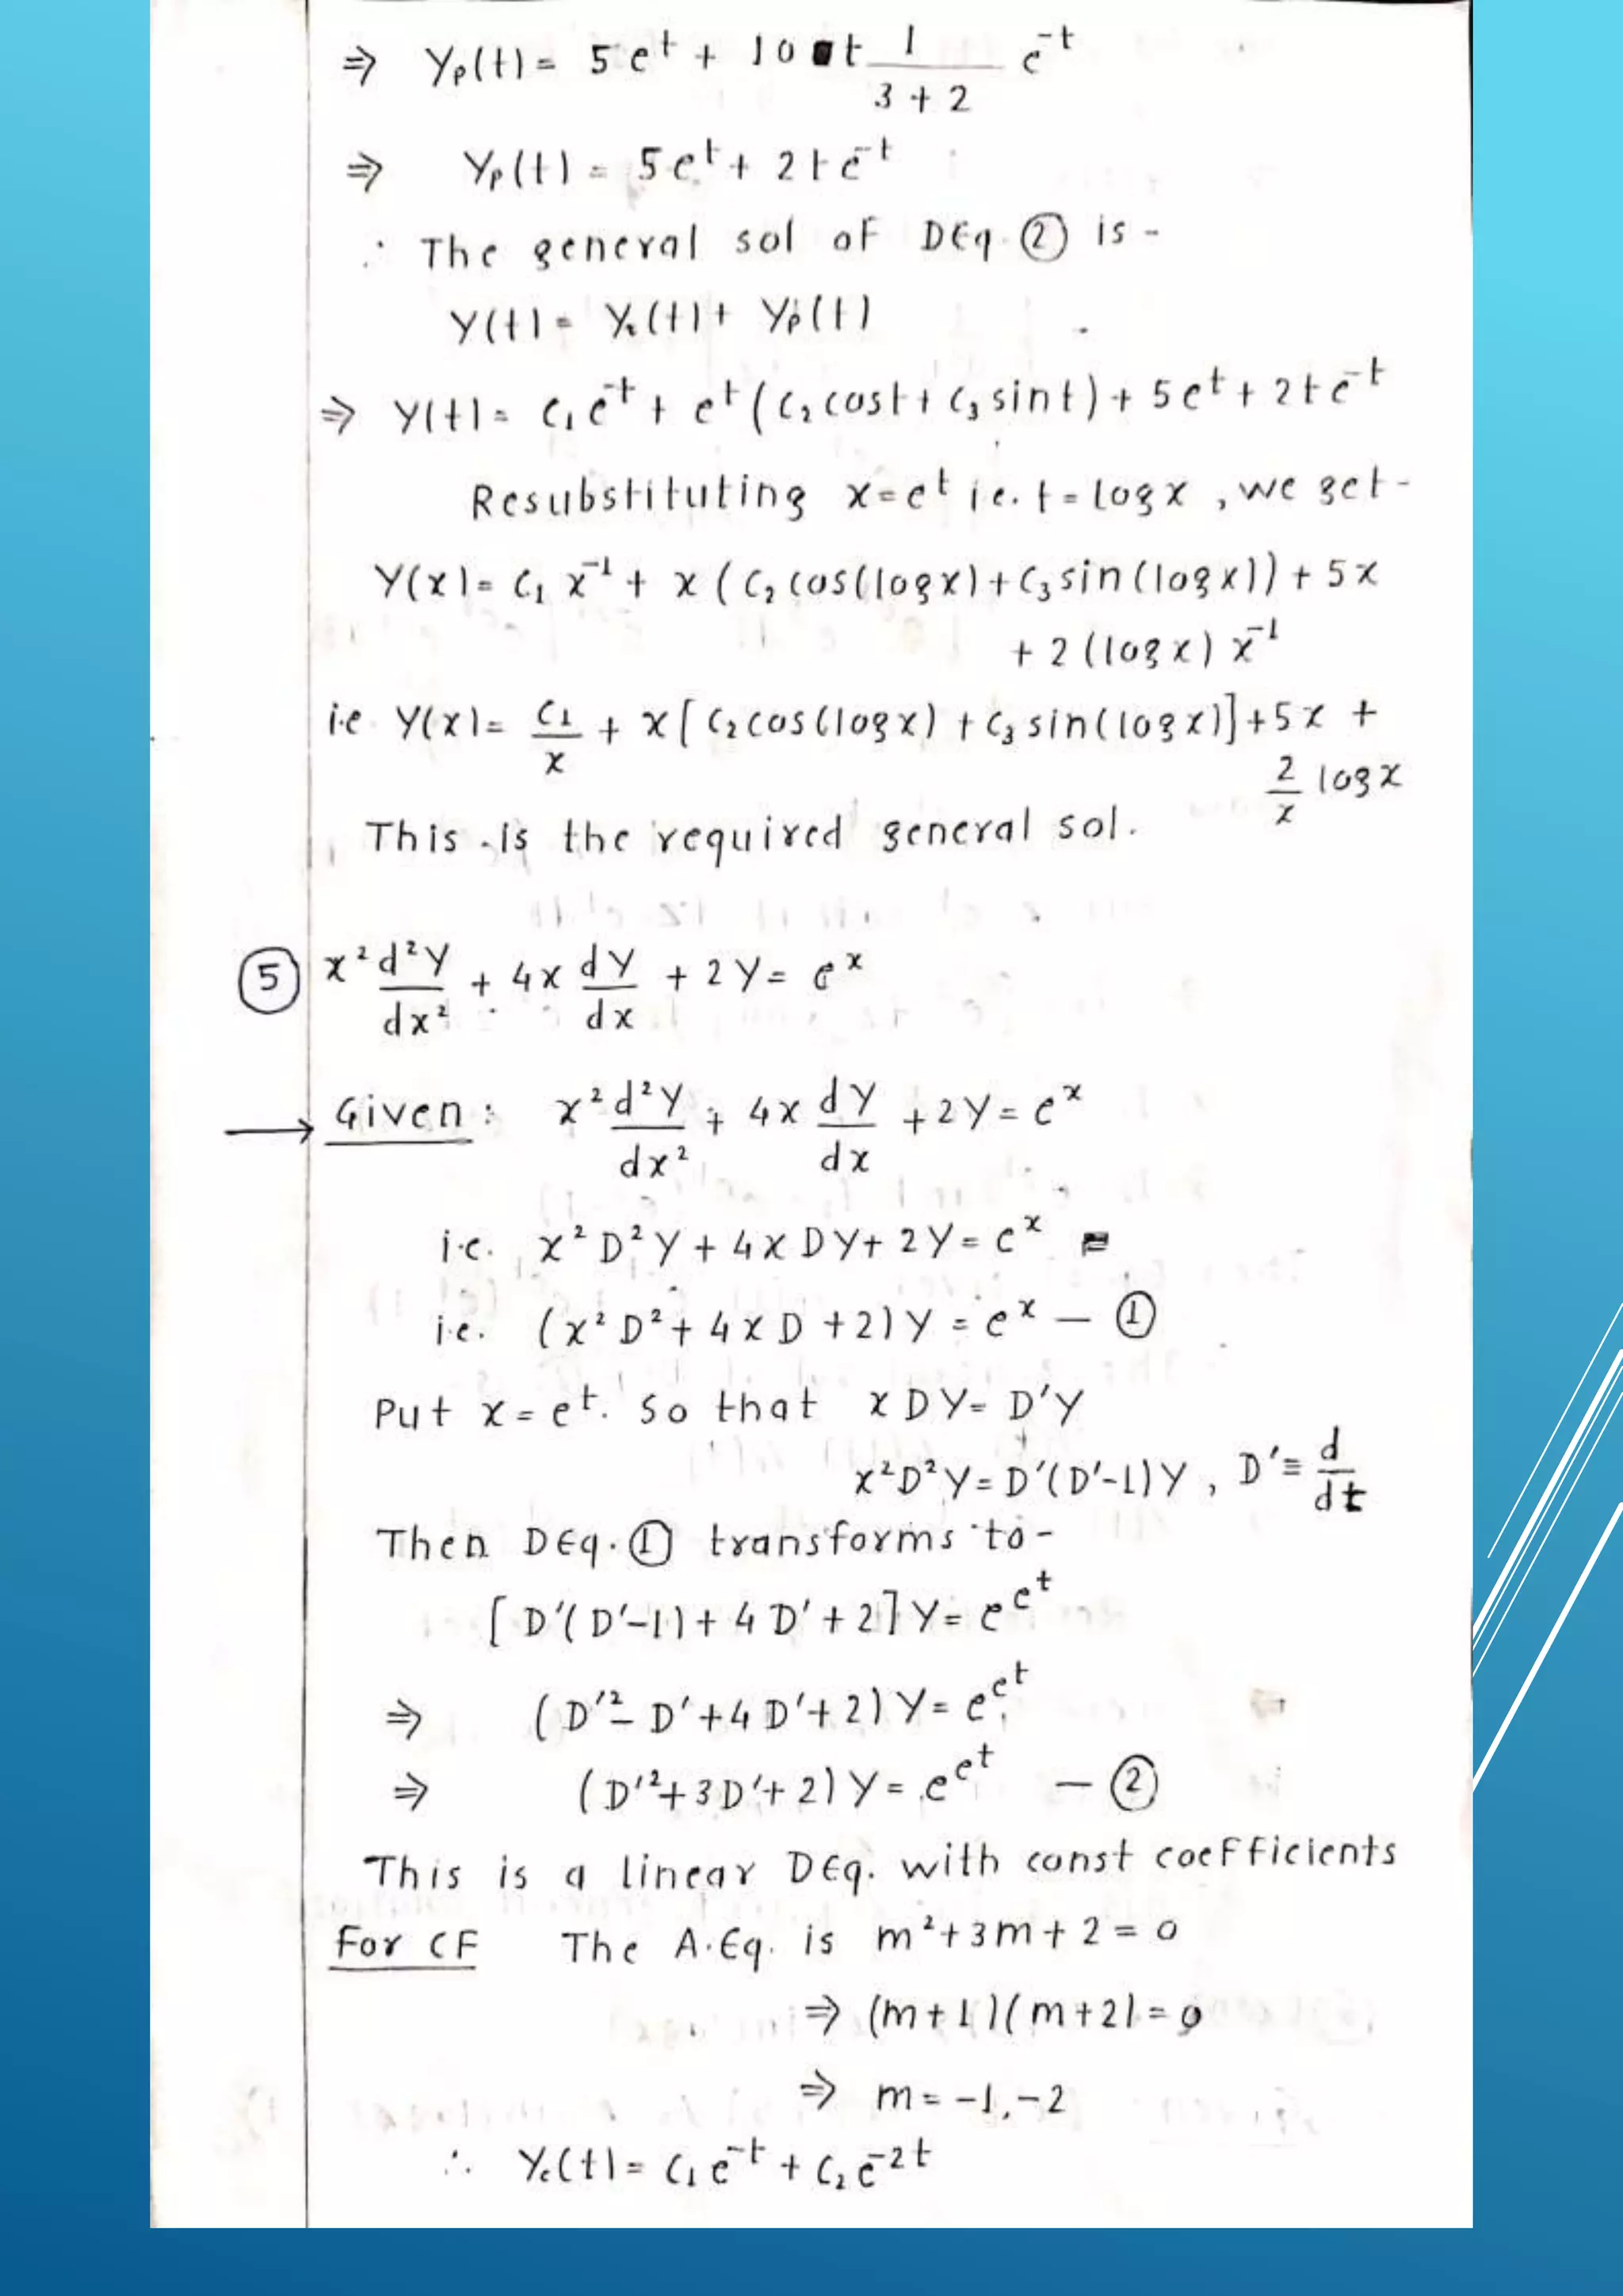 ⇒ Yp(t) = 5e^t + 10 t 1/(3+2) e^-t
⇒ Yp(t) = 5e^t + 2te^-t
∴ The general sol of DEq. ② is -
Y(t) = Yc(t) + Yp(t)
⇒ Y(t) = C₁e^-t + e^t (C₂ cost + C₃ sint) + 5e^t + 2te^-t
Resubstituting x = e^t i.e. t = log x , we get -
Y(x) = C₁ x^-1 + x (C₂ cos(logx) + C₃ sin(logx)) + 5x
+ 2 (logx) x^-1
i.e Y(x) = C₁/x + x [C₂ cos(logx) + C₃ sin(logx)] + 5x +
2/x logx
This is the required general sol.
⑤ x² d²Y/dx² + 4x dY/dx + 2Y = e^x
→ Given : x² d²Y/dx² + 4x dY/dx + 2Y = e^x
i.e. x² D² Y + 4x DY + 2Y = e^x
i.e. (x² D² + 4xD + 2) Y = e^x — ①
Put x = e^t. So that xDY = D'Y
x²D²Y = D'(D'-1)Y , D' ≡ d/dt
Then DEq. ① transforms to -
[D'(D'-1) + 4D' + 2] Y = e^e^t
⇒ (D'² - D' + 4D' + 2) Y = e^e^t
⇒ (D'² + 3D' + 2) Y = e^e^t — ②
This is a linear DEq. with const coefficients
For CF The A.Eq. is m² + 3m + 2 = 0
⇒ (m+1)(m+2) = 0
⇒ m = -1, -2
∴ Yc(t) = C₁e^-t + C₂e^-2t